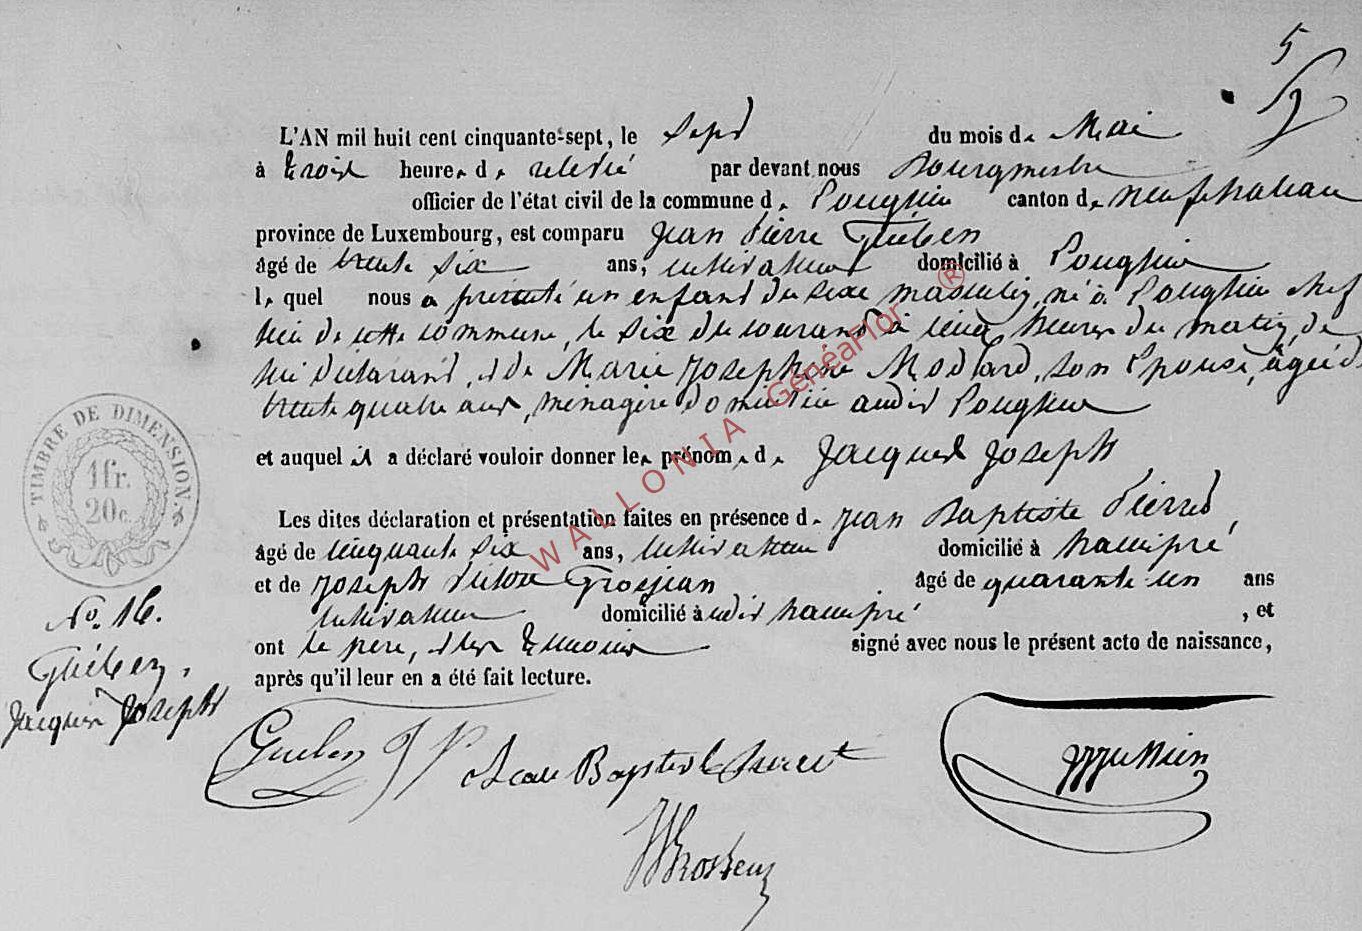 5
L'AN mil huit cent cinquante-sept, le sept du mois de Mai
à trois heures de relevé par devant nous Bourgmestre
officier de l'état civil de la commune de Longlier canton de neufchateau
province de Luxembourg, est comparu Jean Pierre Guében
âgé de trente six ans, cultivateur domicilié à Longlier
lequel nous a présenté un enfant du sexe masculin, né à Longlier chef
lieu de cette commune, le six du courant à cinq heures du matin, de
lui déclarant, et de Marie Josephine Modard, son épouse, âgée de
trente quatre ans, ménagère domiciliée audit Longlier
et auquel il a déclaré vouloir donner les prénoms de Jacques Joseph
Les dites déclaration et présentation faites en présence de Jean Baptiste Pierret,
âgé de cinquante six ans, cultivateur domicilié à hamipré
et de Joseph Grosjean âgé de quarante un ans
cultivateur domicilié audit hamipré, et
ont le père, et les témoins signé avec nous le présent acte de naissance,
après qu'il leur en a été fait lecture.
TIMBRE DE DIMENSION.
1 fr.
20 c.
No. 16.
Guében,
Jacques Joseph
Gueben J P
Jean Baptiste Pierret
WALLONIA GénéaFlor ®